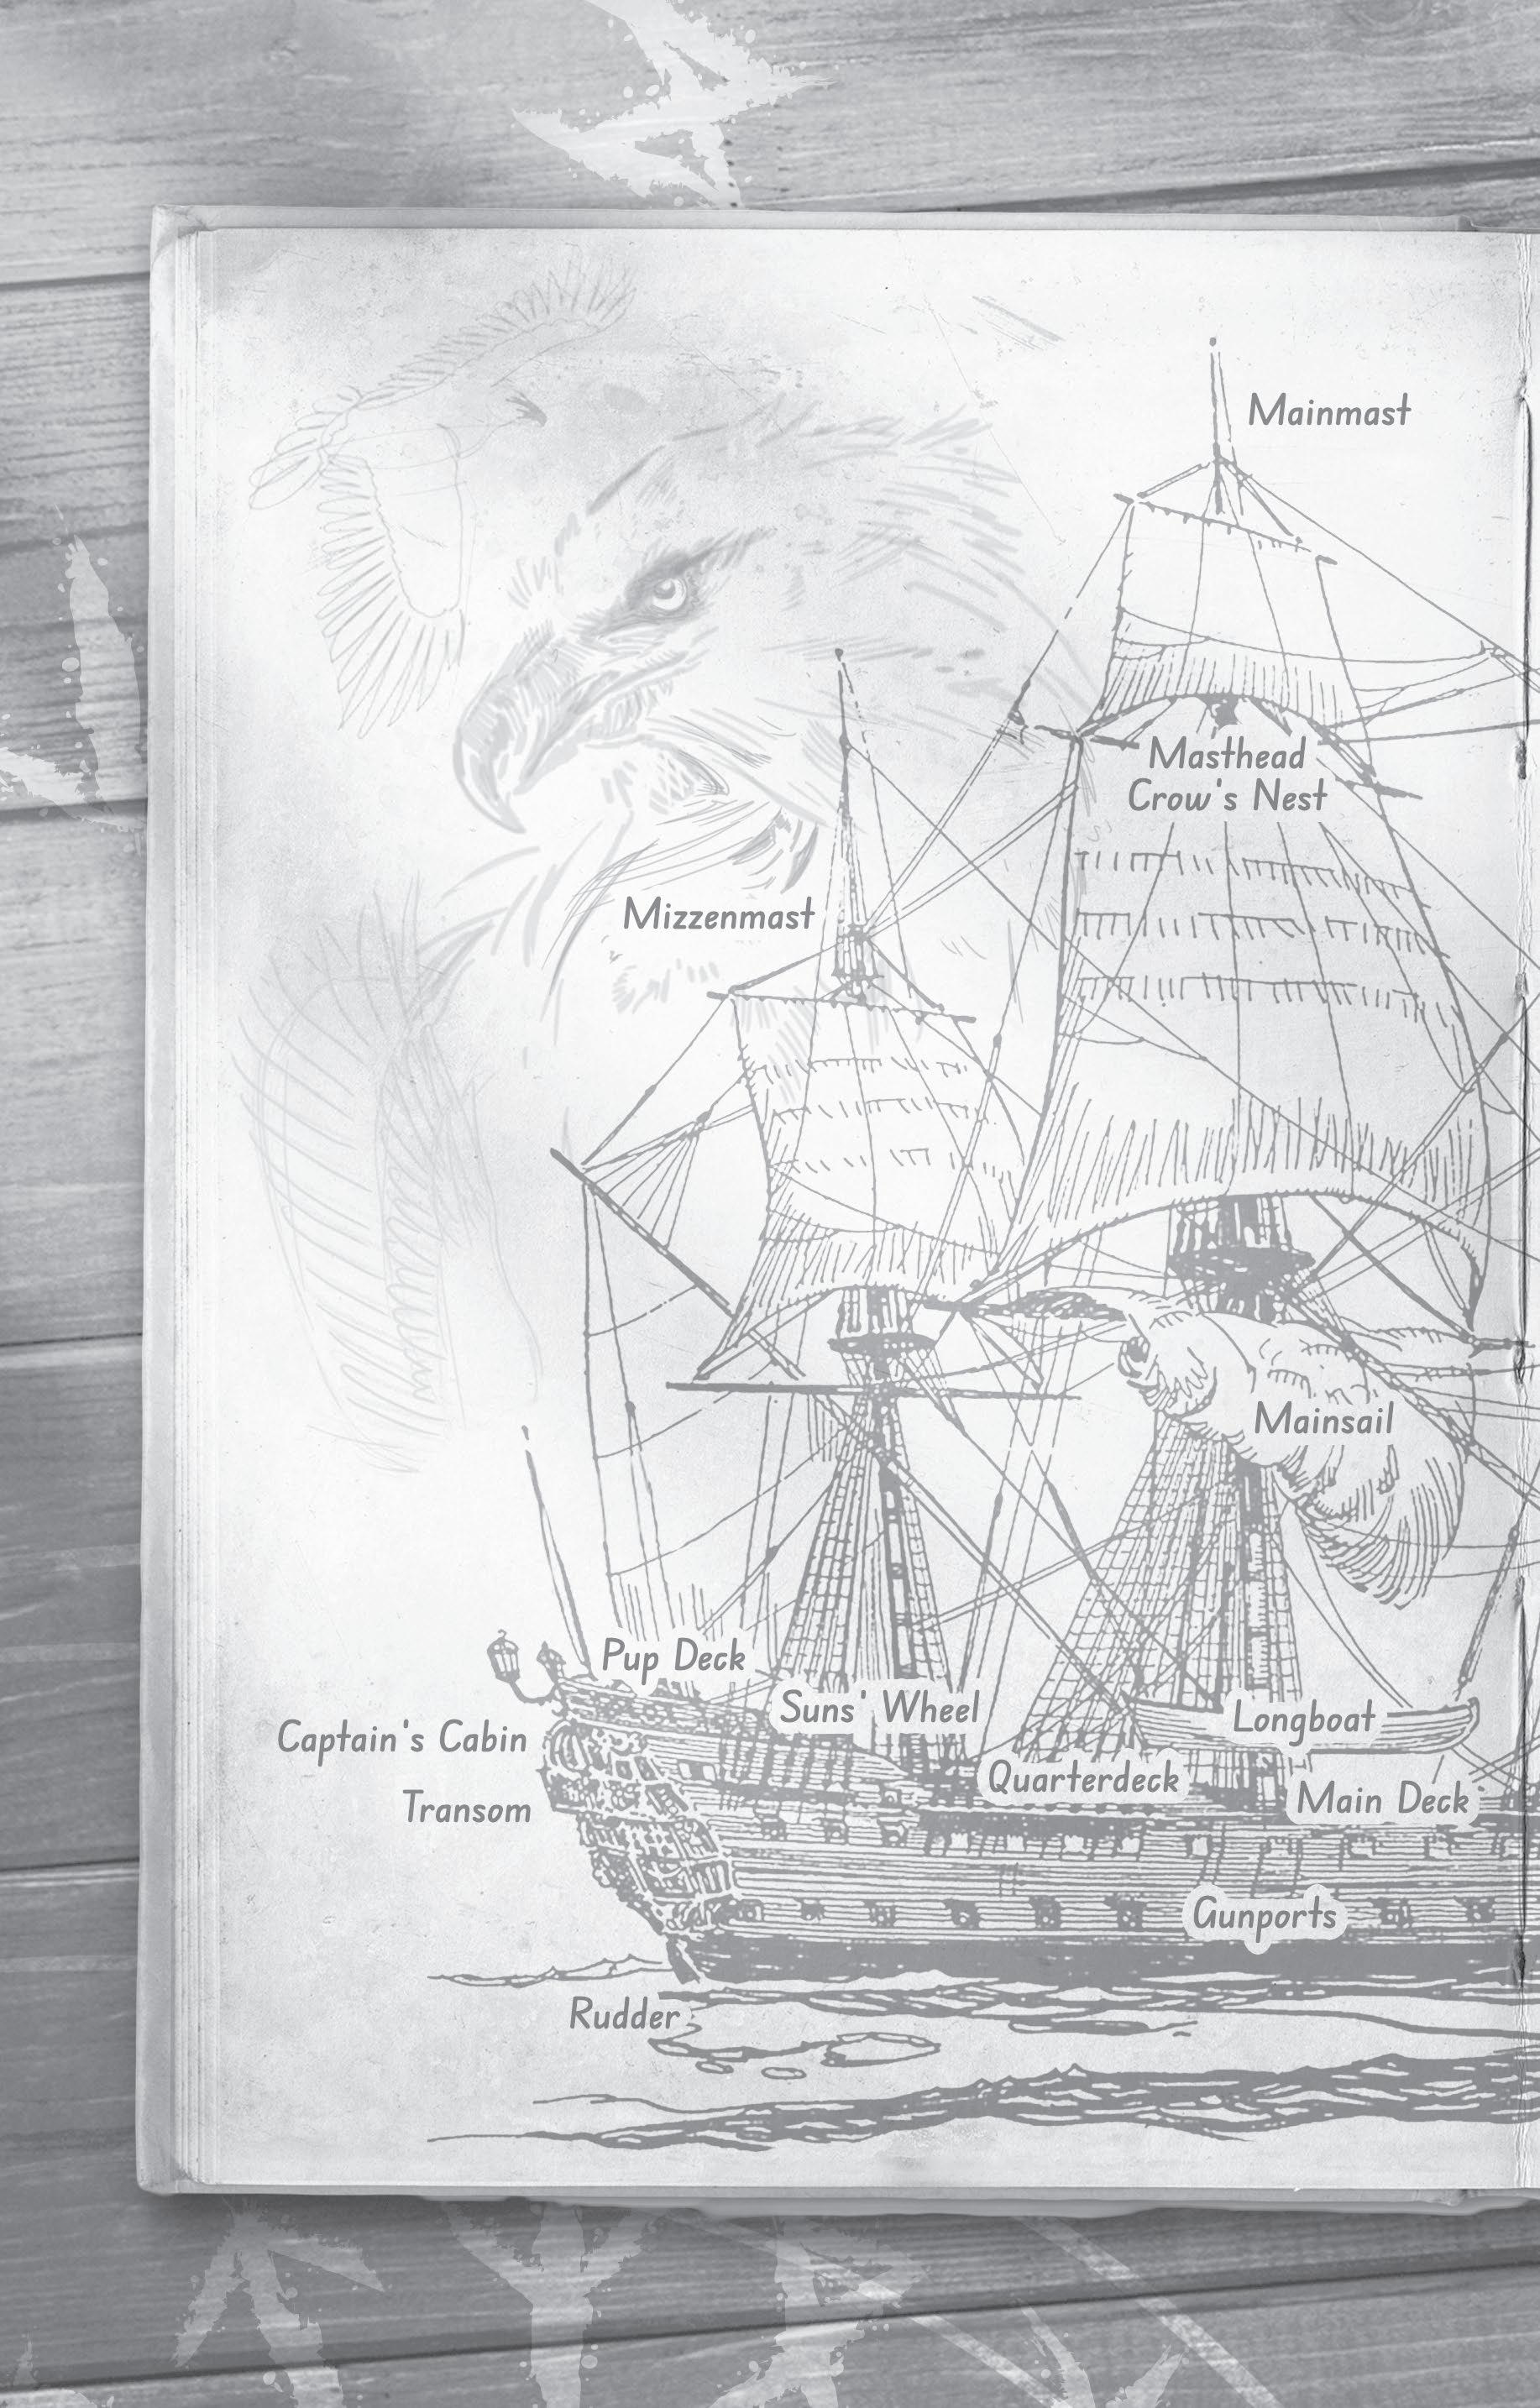 Mainmast
Masthead
Crow's Nest
Mizzenmast
Mainsail
Pup Deck
Suns' Wheel
Longboat
Captain's Cabin
Quarterdeck
Transom
Main Deck
Gunports
Rudder